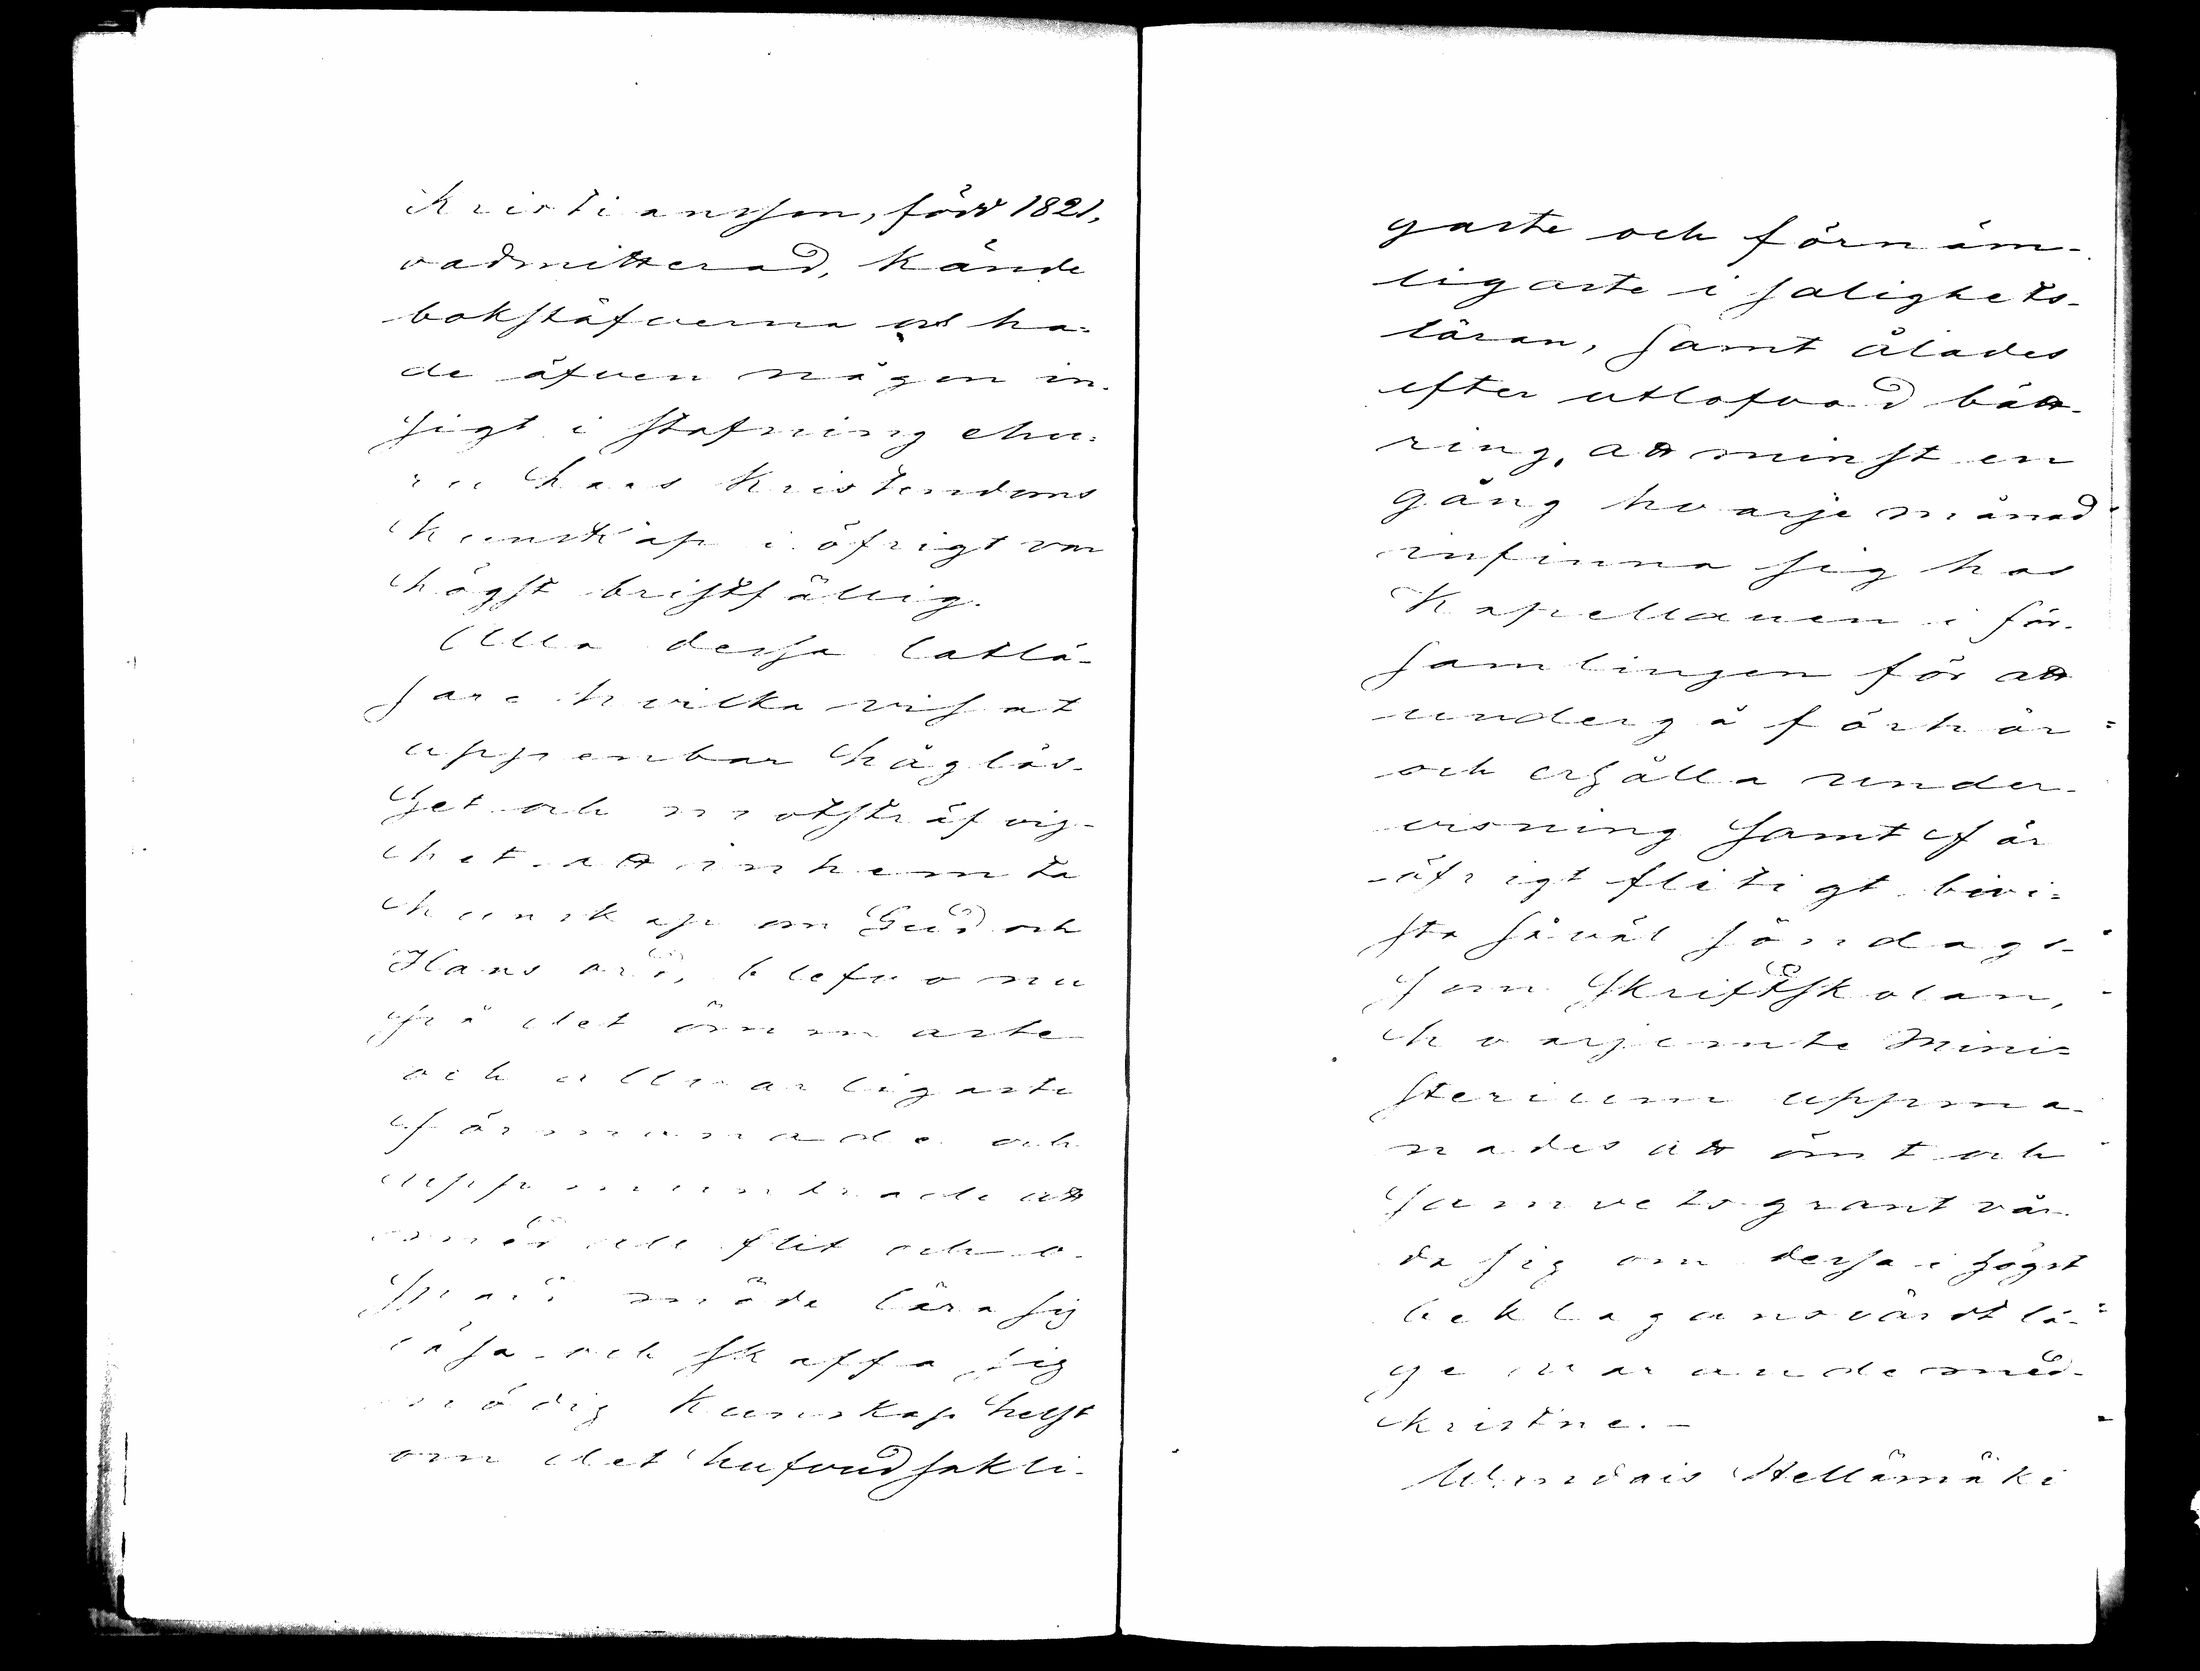 Kristiansson, född 1821,
oadmitterad, kände
bokstäfverna och ha-
de äfven någon in-
sigt i stafning ehu-
ru hans Kristendoms
kunskap i öfrigt var
högst bristfällig.
Alla dessa latlä-
sare hvilka visat
uppenbar håglös-
het och motsträfvig-
het att inhemta
kunskap om Gud och
Hans ord, blefvo nu
på det ömmaste
och allvarligaste
förmanade och
uppmuntrade att
med all flit och o-
spard möda lära sig
läsa och skaffa sig
nödig kunskap helst
om det hufvudsakli-
gaste och förnäm-
ligaste i salighets-
läran, samt ålades
efter utlofvad bätt-
ring, att minst en
gång hvarje månad
infinna sig hos
Kapellanen i för-
samlingen för att
undergå förhör
och erhålla under-
visning samt för
öfrigt flitigt bivi-
sta såväl söndags-
som Skriftskolan,
hvarjemte Mini-
sterium uppma-
nades att ömt och
samvetsgrant vår-
da sig om dessa i högst
beklagansvärdt lä-
ge varande med-
kristne. -
Hellämäki